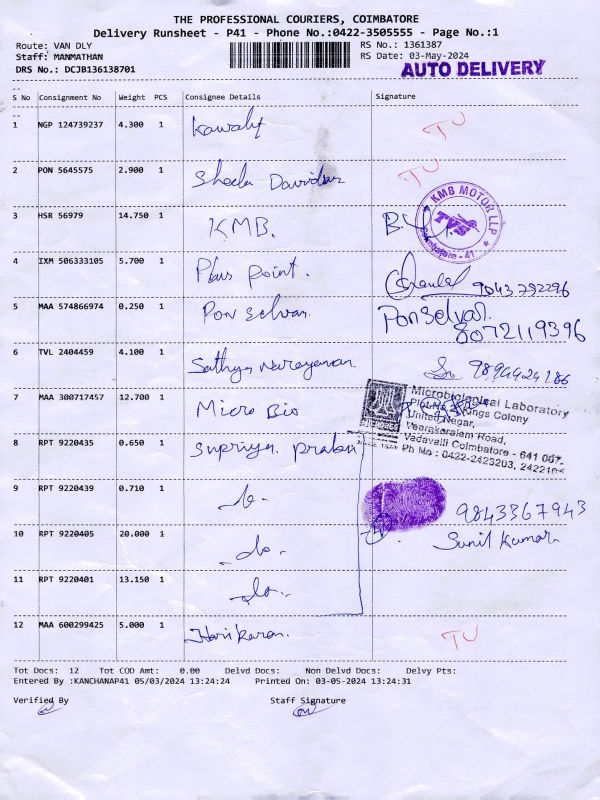 THE PROFESSIONAL COURIERS, COIMBATORE
Delivery Runsheet - P41 - Phone No.:0422-3505555 - Page No.:1
Route: VAN DLY RS No.: 1361387
Staff: MANMATHAN RS Date: 03-May-2024
DRS No.: DCJB136138701 AUTO DELIVERY
S No Consignment No Weight PCS Consignee Details Signature
1 NGP 124739237 4.300 1 TU
2 PON 5645575 2.900 1 Sheela Davidar TU
3 HSR 56979 14.750 1 KMB. KMB MOTOR LLP TVS Coimbatore - 41
4 IXM 506333105 5.700 1 Plus point. 9043792296
5 MAA 574866974 0.250 1 Ponselvan. Ponselvan 8072119396
6 TVL 2404459 4.100 1 Sathya Narayanan 9894424286
7 MAA 300717457 12.700 1 Micro Bio
Microbiological Laboratory
Kings Colony
United Nagar,
Veerakeralam Road,
Vadavalli Coimbatore - 641 007.
Ph No : 0422-2423203,
8 RPT 9220435 0.650 1 Supriya prabu
9 RPT 9220439 0.710 1 do- 9843367943
10 RPT 9220405 20.000 1 -do- Sunil Kumar
11 RPT 9220401 13.150 1 -do-
12 MAA 600299425 5.000 1 Harikaran. TU
Tot Docs: 12 Tot COD Amt: 0.00 Delvd Docs: Non Delvd Docs: Delvy Pts:
Entered By :KANCHANAP41 05/03/2024 13:24:24 Printed On: 03-05-2024 13:24:31
Verified By Staff Signature